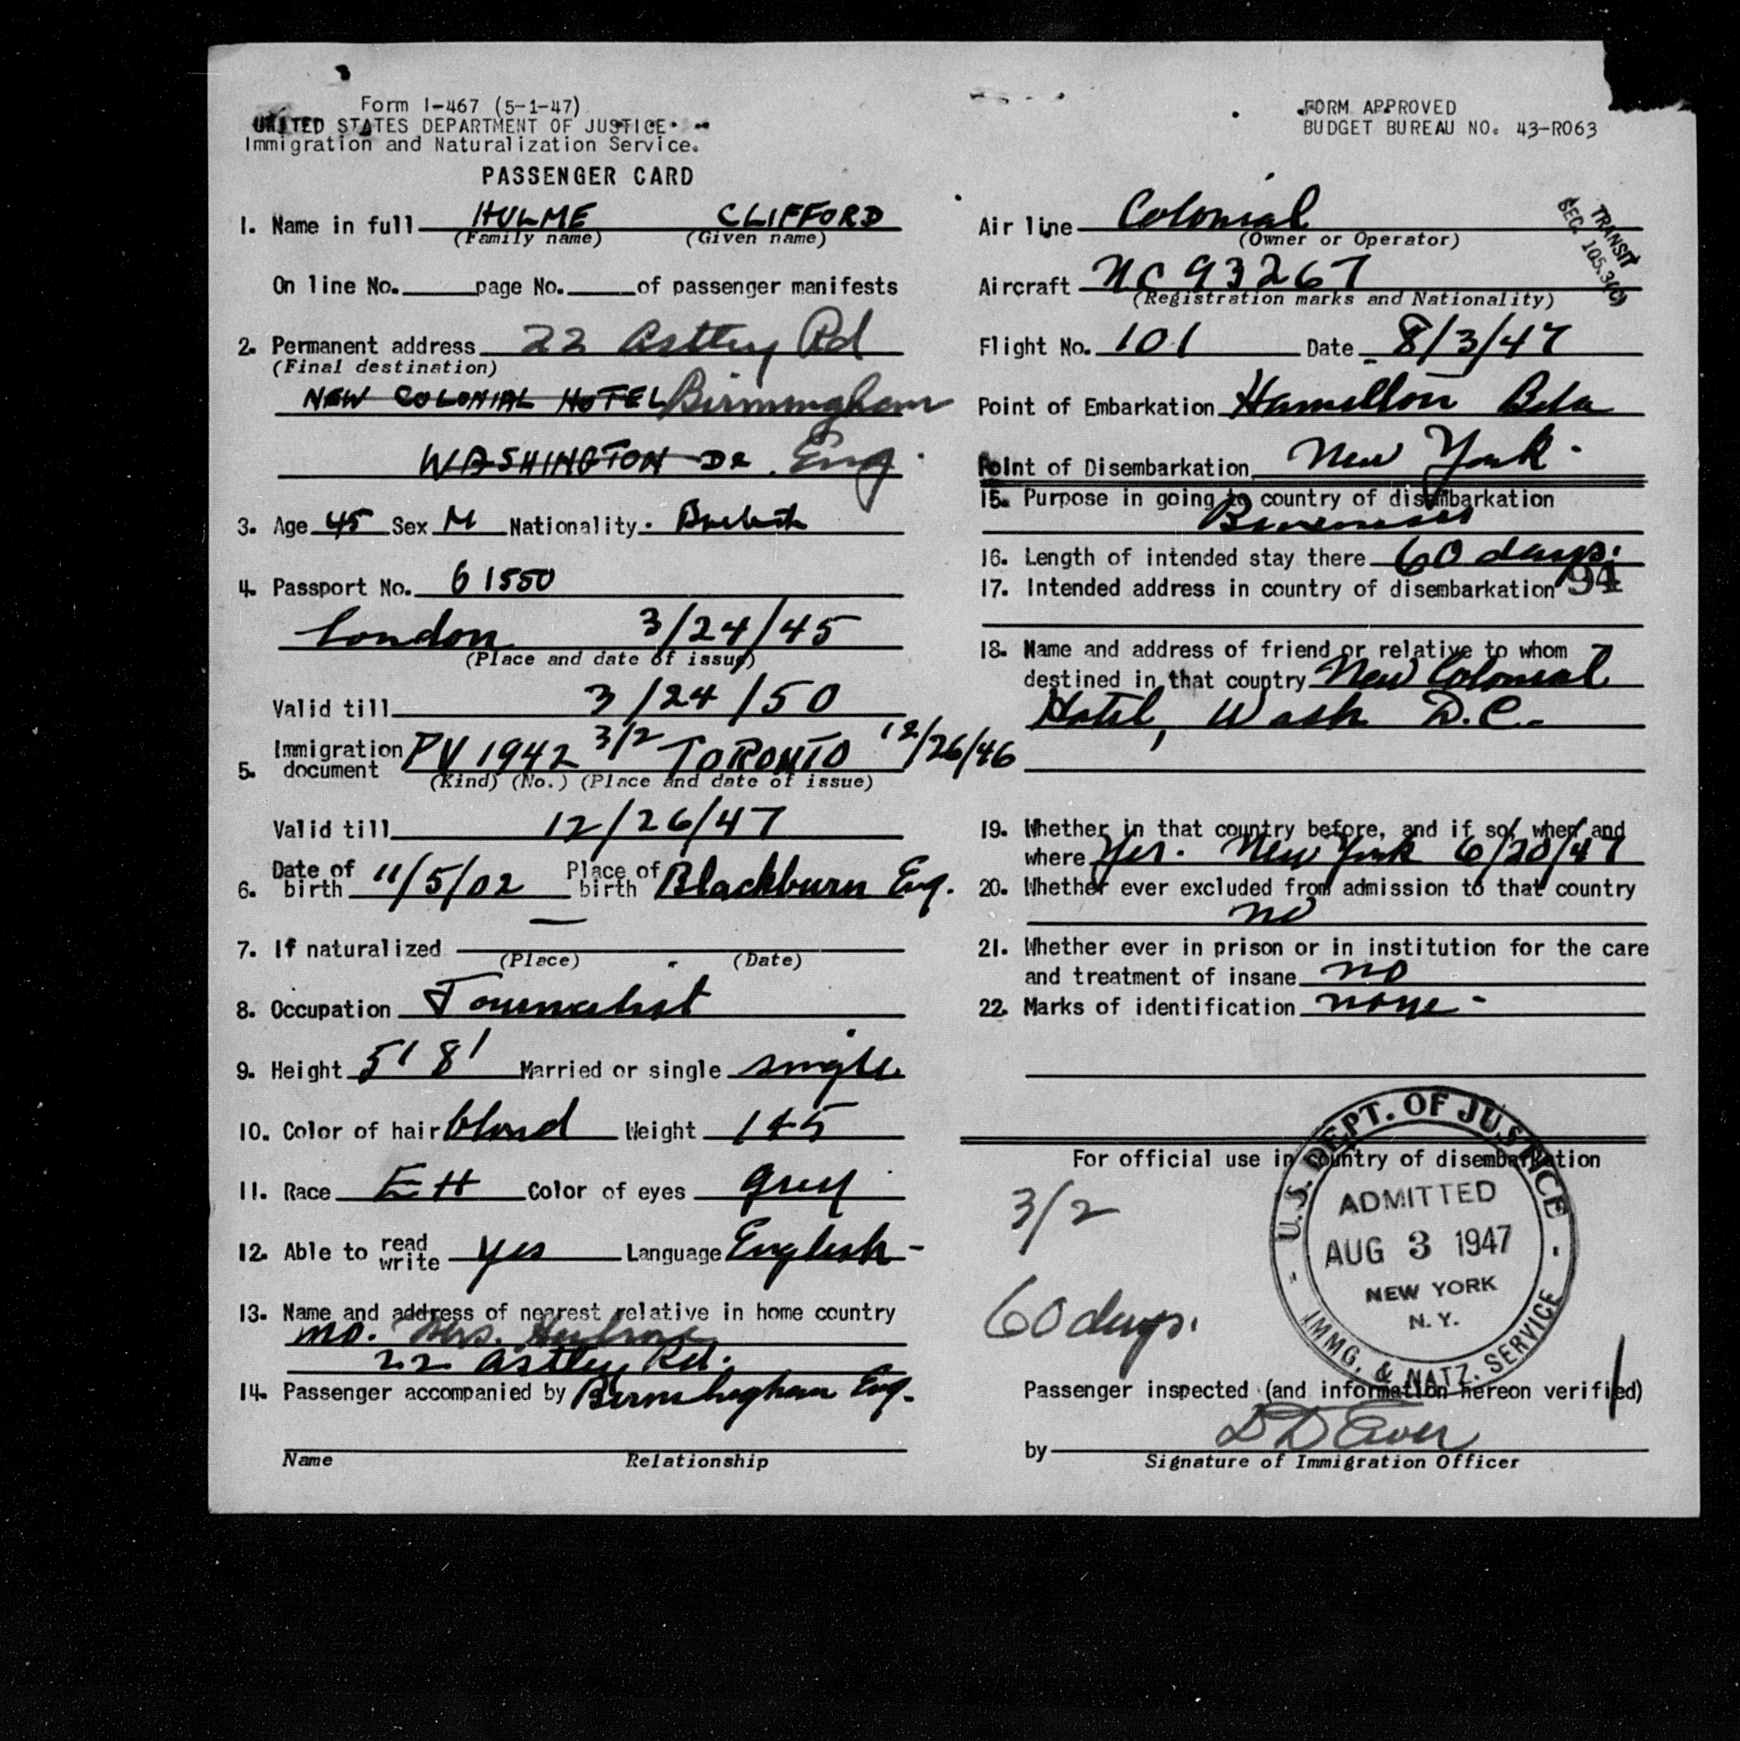 Form I-467 (5-1-47)
UNITED STATES DEPARTMENT OF JUSTICE
Immigration and Naturalization Service.
PASSENGER CARD
1. Name in full HULME CLIFFORD
(Family name) (Given name)
On line No. page No. of passenger manifests
2. Permanent address 22 Astley Rd
(Final destination)
NEW COLONIAL HOTEL Birmingham
WASHINGTON DC Eng.
3. Age 45 Sex M Nationality British
4. Passport No. 61550
London 3/24/45
(Place and date of issue)
Valid till 3/24/50
5. Immigration document PV 1942 3/2 TORONTO 12/26/46
(Kind) (No.) (Place and date of issue)
Valid till 12/26/47
6. Date of birth 11/5/02 Place of birth Blackburn Eng.
7. If naturalized —
(Place) (Date)
8. Occupation Journalist
9. Height 5' 8' Married or single single
10. Color of hair blond Weight 145
11. Race Color of eyes grey
12. Able to read write yes Language English -
13. Name and address of nearest relative in home country
mo. Mrs. Hulme
22 Astley Rd.
14. Passenger accompanied by Birmingham Eng.
Name Relationship
FORM APPROVED
BUDGET BUREAU NO. 43-R063
TRANSIT
SEC. 105.3(c)
Air line Colonial
(Owner or Operator)
Aircraft NC 93267
(Registration marks and Nationality)
Flight No. 101 Date 8/3/47
Point of Embarkation Hamilton Bda
Point of Disembarkation New York.
15. Purpose in going to country of disembarkation
Business
16. Length of intended stay there 60 days.
17. Intended address in country of disembarkation 94
18. Name and address of friend or relative to whom
destined in that country New Colonial
Hotel, Wash D.C.
19. Whether in that country before, and if so, when and
where Yes. New York 6/20/47
20. Whether ever excluded from admission to that country
no
21. Whether ever in prison or in institution for the care
and treatment of insane no
22. Marks of identification none -
For official use in country of disembarkation
3/2
60 days.
U.S. DEPT. OF JUSTICE
ADMITTED
AUG 3 1947
NEW YORK
N.Y.
IMMG. & NATZ. SERVICE
Passenger inspected (and information hereon verified)
by
Signature of Immigration Officer